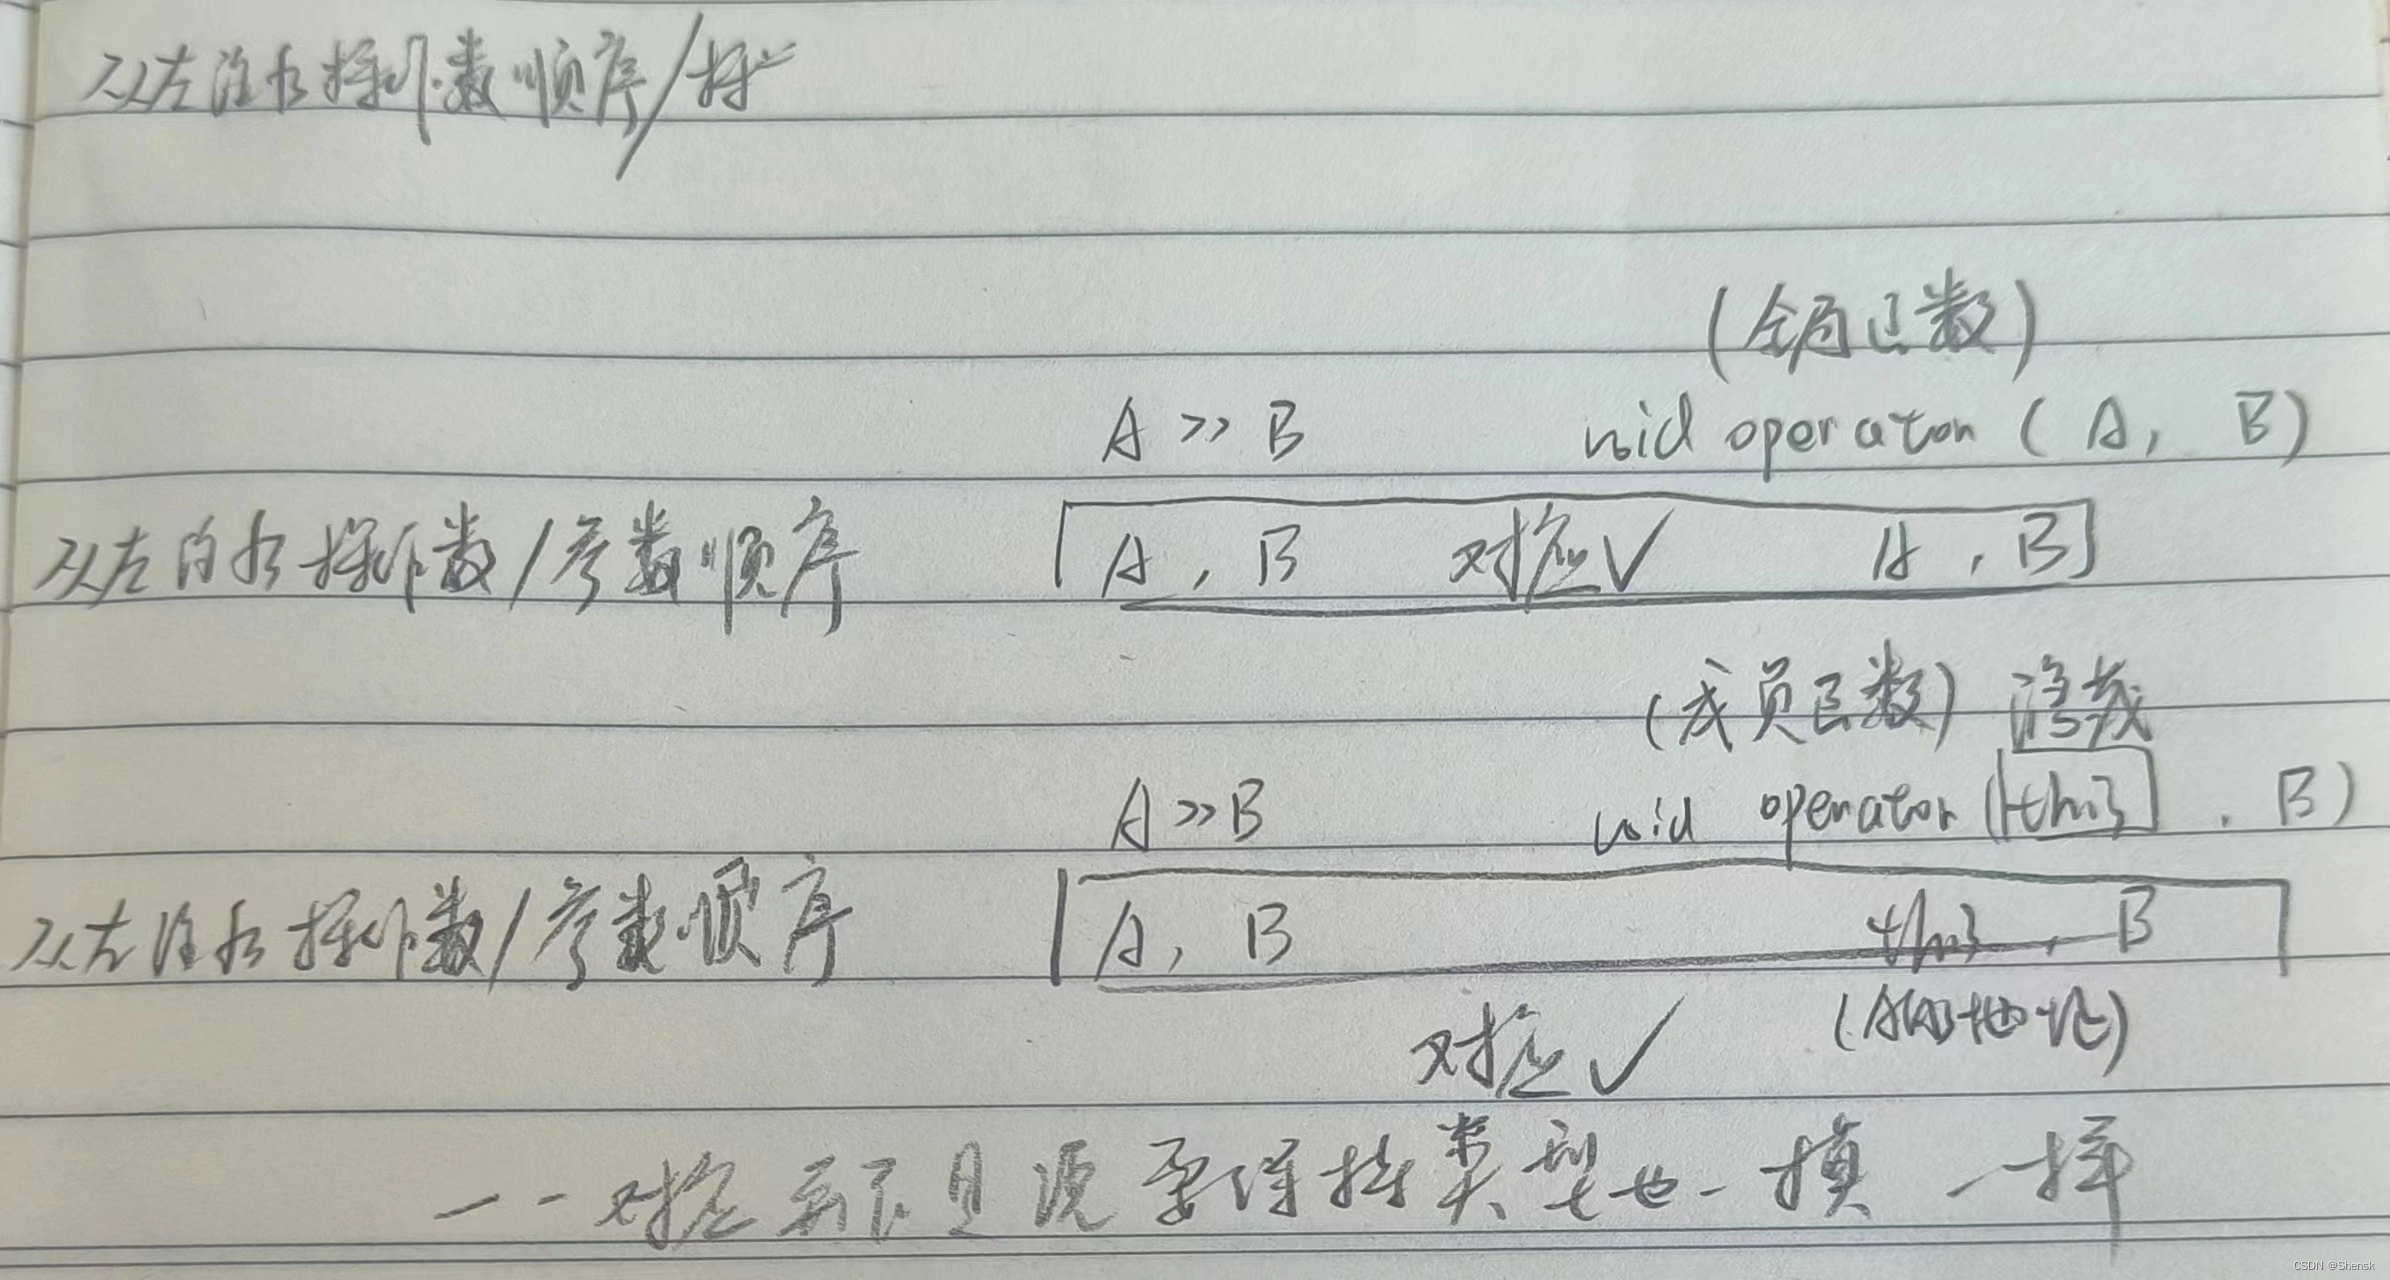 从左往右操作数顺序/操
(全局函数)
A >> B void operator ( A, B )
从左向右操作数/参数顺序 A , B 对应√ A , B
(成员函数) 隐藏
A >> B void operator ( this , B )
从左往右操作数/参数顺序 A, B this , B
对应√ (A的地址)
一一对应 并不是说 要保持类型也一模一样
CSDN @Shensk